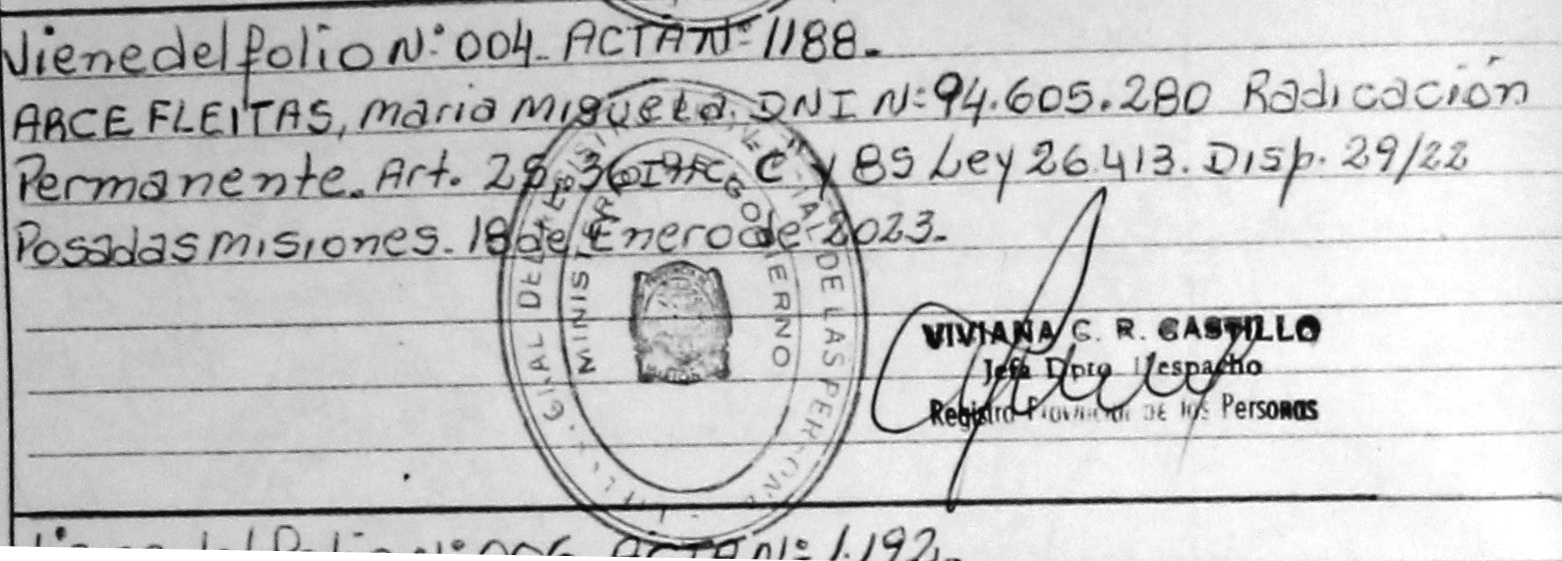 Viene del folio N:° 004. ACTA N:° 1188.
ARCE FLEITAS, maria miguela. DNI N:° 94.605.280 Radicación
Permanente. Art. C y 85 Ley 26.413. Disp. 29/22
Posadas misiones. 18 de Enero de 2023.
MINISTERIO GOBIERNO
DE LAS PERSONAS
VIVIANA C. R. CASTILLO
Jefa Dpto Despacho
Registro Provincial de los Personas
del folio N:° 006 ACTA N:° 1.192.